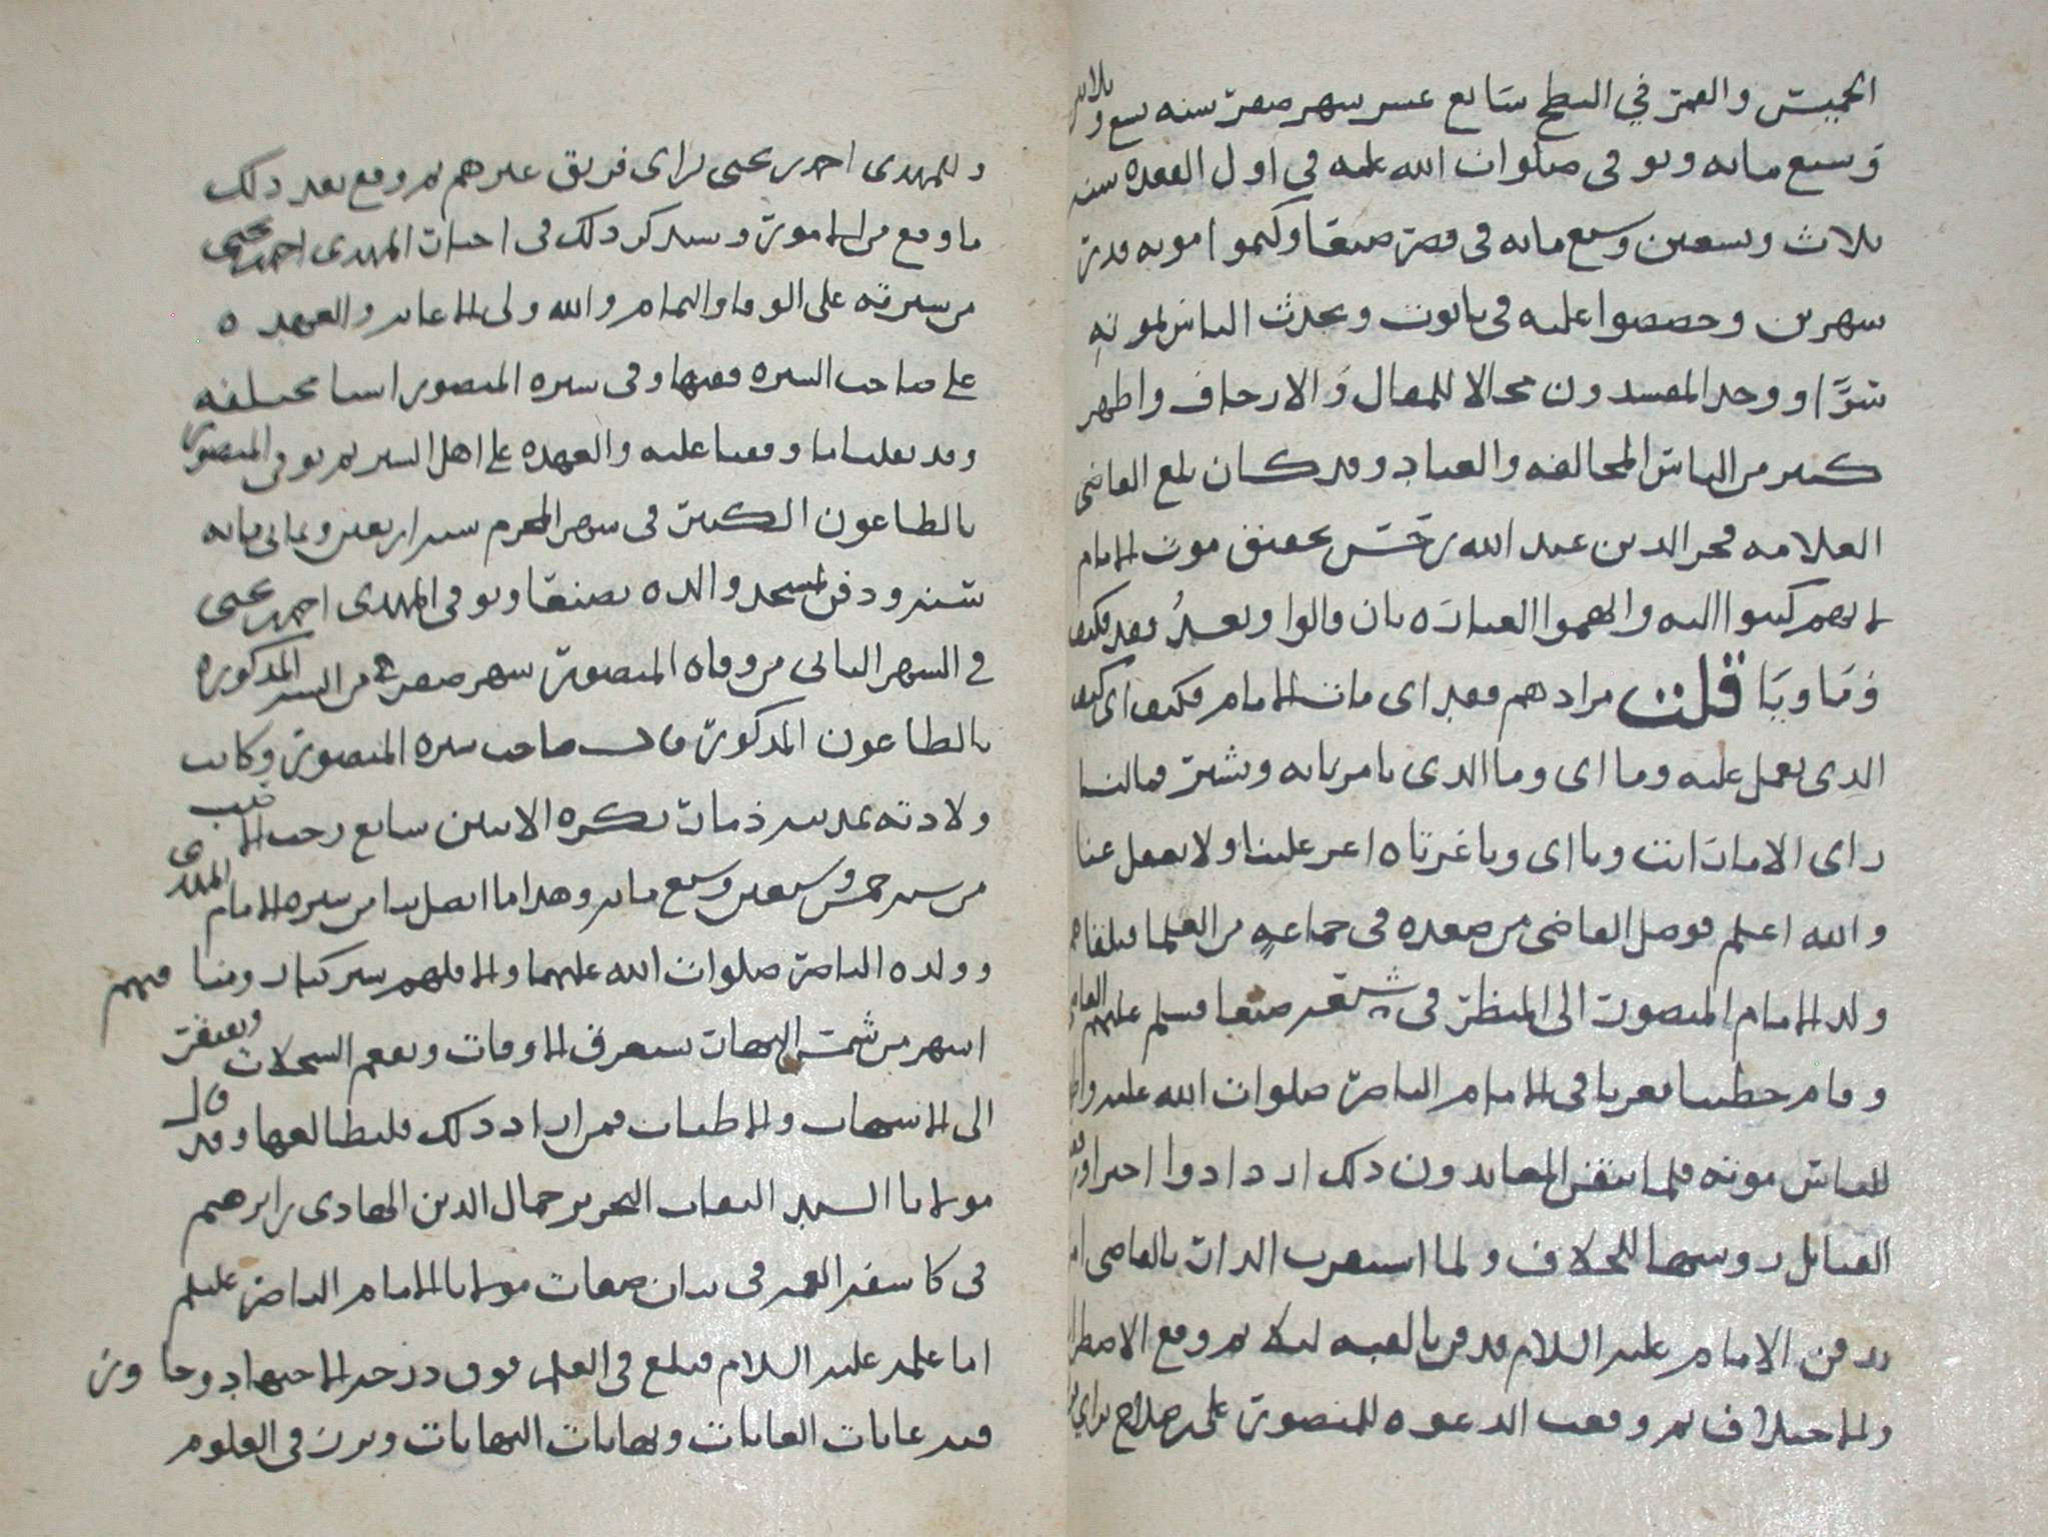 الجيش والعمر في البطح سابع عشر شهر صفر سنه تسع وثلاثين
وسبع مائه وتوفي صلوات الله عليه في اول القعده سنه
ثلاث وتسعين وسبع مائه في قصر صنعا وكتموا موته قدر
شهرين وجصصوا عليه في تابوت وتحدث الناس بموته
سرًّا ووجد المفسدون مجالا للمقال والارجاف واظهر
كثير من الناس المخالفه والعناد وقد كان بلغ القاضي
العلامه فخر الدين عبد الله بن حسن تحقيق موت الامام
لانهم كتبوا اليه وابهموا العباره بان قالوا وبعدُ فقد فكيف
وما ويا قلت مرادهم فقد اي مات الامام فكيف اي كيف
الذي نعمل عليه وما اي وما الذي تامر نابه ونشير فما لنا
راي الا ما رايت ويا اي ويا غرتاه اعر علينا ولا تغفل عنا
والله اعلم فوصل القاضي من صعده في جماعه من العلما فتلقاهم
ولد الامام المنصور الى المنظر في صنعا فسلم عليهم
وقام خطيبا معزيا في الامام الناصر صلوات الله عليه
للناس موته فلما تيقن المعاندون ذلك ازدادوا
القبائل روسها للخلاف ولما استقرت الدار بالقاضي
دفن الامام عليه السلام فدفن بالقبه ليلا ثم وقع الاضطراب
والاختلاف ثم وقعت الدعوه للمنصور علي بن صلاح براي
وللمهدي احمد بن يحيى براي فريق غيرهم ثم وقع بعد ذلك
ما وقع من الامور وسنذكر ذلك في اخبار المهدي احمد بن يحيى
من سيرته على الوفا والتمام والله ولي الاعانه والعهده
على صاحب السيره ففيها وفي سيره المنصور اشيا مختلفه
وقد نقلنا ما وقفنا عليه والعهده على اهل السير ثم توفي المنصور
بالطاعون الكبير في شهر المحرم سنه اربعين وثماني مائه
سنه ودفن بمسجد والده بصنعا وتوفي المهدي احمد بن يحيى
في الشهر الثاني من وفاه المنصور شهر صفر من السنه المذكوره
بالطاعون المذكور قال صاحب سيره المنصور وكانت
ولادته بمدينه ذمار بكره الاثنين سابع رجب
من سنه خمس وسبعين وسبع مائه وهذا ما اتصل بنا من سيره الامام المهدي
وولده الناصر صلوات الله عليهما والا فلهم سير كبار ومناقبهم
اشهر من شمس النهار تستغرق الاوقات وتفعم السجلات وتفتقر
الى الاسهاب والاطناب فمن اراد ذلك فليطالعها وقد قال
مولانا السيد النقاب النحرير جمال الدين الهادي بن ابرهيم
في كاشفه الغمه في بيان صفات مولانا الامام الناصر عليلم
اما علمه عليه السلام فبلغ في العلم فوق درجه الاجتهاد وجاوز
فيه غايات الغايات ونهايات النهايات وبرز في العلوم